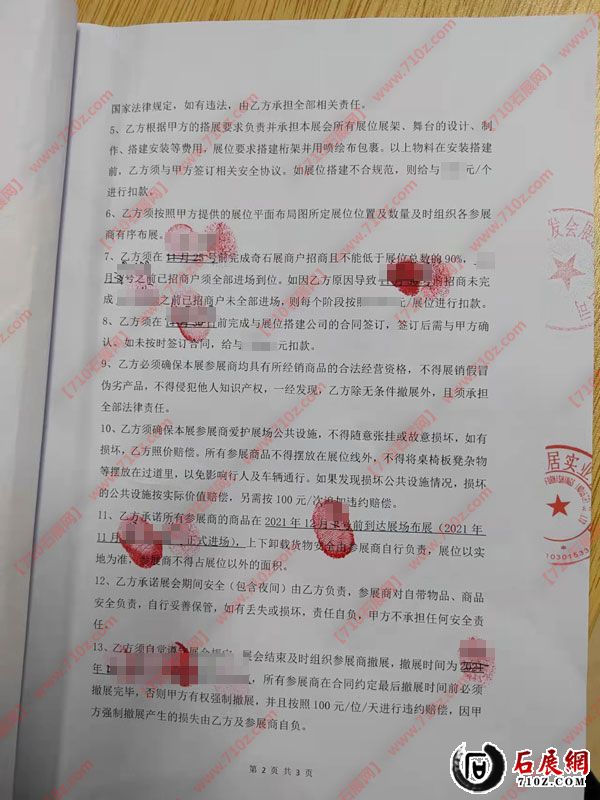 国家法律规定，如有违法，由乙方承担全部相关责任。
5、乙方根据甲方的搭展要求负责并承担本展会所有展位展架、舞台的设计、制
作、搭建安装等费用，展位要求搭建桁架并用喷绘布包裹。以上物料在安装搭建
前，乙方须与甲方签订相关安全协议。如展位搭建不合规范，则给与 元/个
进行扣款。
6、乙方须按照甲方提供的展位平面布局图所定展位位置及数量及时组织各参展
商有序布展。
7、乙方须在 11 月 25 号前完成奇石展商户招商且不能低于展位总数的 90%，
月 号之前已招商户须全部进场到位。如因乙方原因导致 前招商未完
成 之前已招商户未全部进场，则每个阶段按照 元/展位进行扣款。
8、乙方须在 前完成与展位搭建公司的合同签订，签订后需与甲方确
认。如未按时签订合同，给与 元扣款。
9、乙方必须确保本展参展商均具有所经销商品的合法经营资格，不得展销假冒
伪劣产品，不得侵犯他人知识产权，一经发现，乙方除无条件撤展外，且须承担
全部法律责任。
10、乙方须确保本展参展商爱护展场公共设施，不得随意张挂或故意损坏，如有
损坏，乙方照价赔偿。所有参展商不得摆放在展位线外，不得将桌椅板凳杂物
等摆放在过道里，以免影响行人及车辆通行。如果发现损坏公共设施情况，损坏
的公共设施按实际价值赔偿，另需按 100 元/次追加违约赔偿。
11、乙方承诺所有参展商的商品在 2021 年 12 月 号前到达展场布展（2021 年
11 月 正式进场），上下卸载货物安全由参展商自行负责，展位以实
地为准，参展商不得占展位以外的面积。
12、乙方承诺展会期间安全（包含夜间）由乙方负责，参展商对自带物品、商品
安全负责，自行妥善保管，如有丢失或损坏，责任自负，甲方不承担任何安全责
任。
13、乙方须自觉遵 展会结束及时组织参展商撤展，撤展时间为 2021
年 ，所有参展商在合同约定最后撤展时间前必须
撤展完毕，否则甲方有权强制撤展，并且按照 100 元/位/天进行违约赔偿，因甲
方强制撤展产生的损失由乙方及参展商自负。
第 2 页 共 3 页
发会展
居实业
10301533
【710z石展网】www.710z.com
石展網
710Z.COM